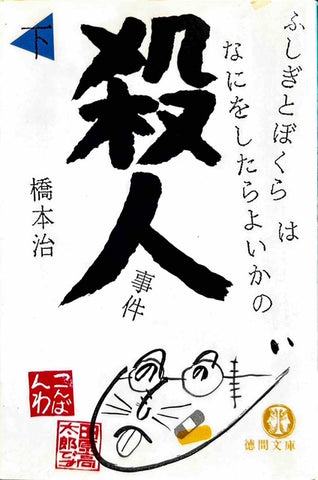 下
ふしぎとぼくらは
なにをしたらよいかの
殺人
事件
橋本治
こんば
んわ
田原高
太郎です
徳間文庫